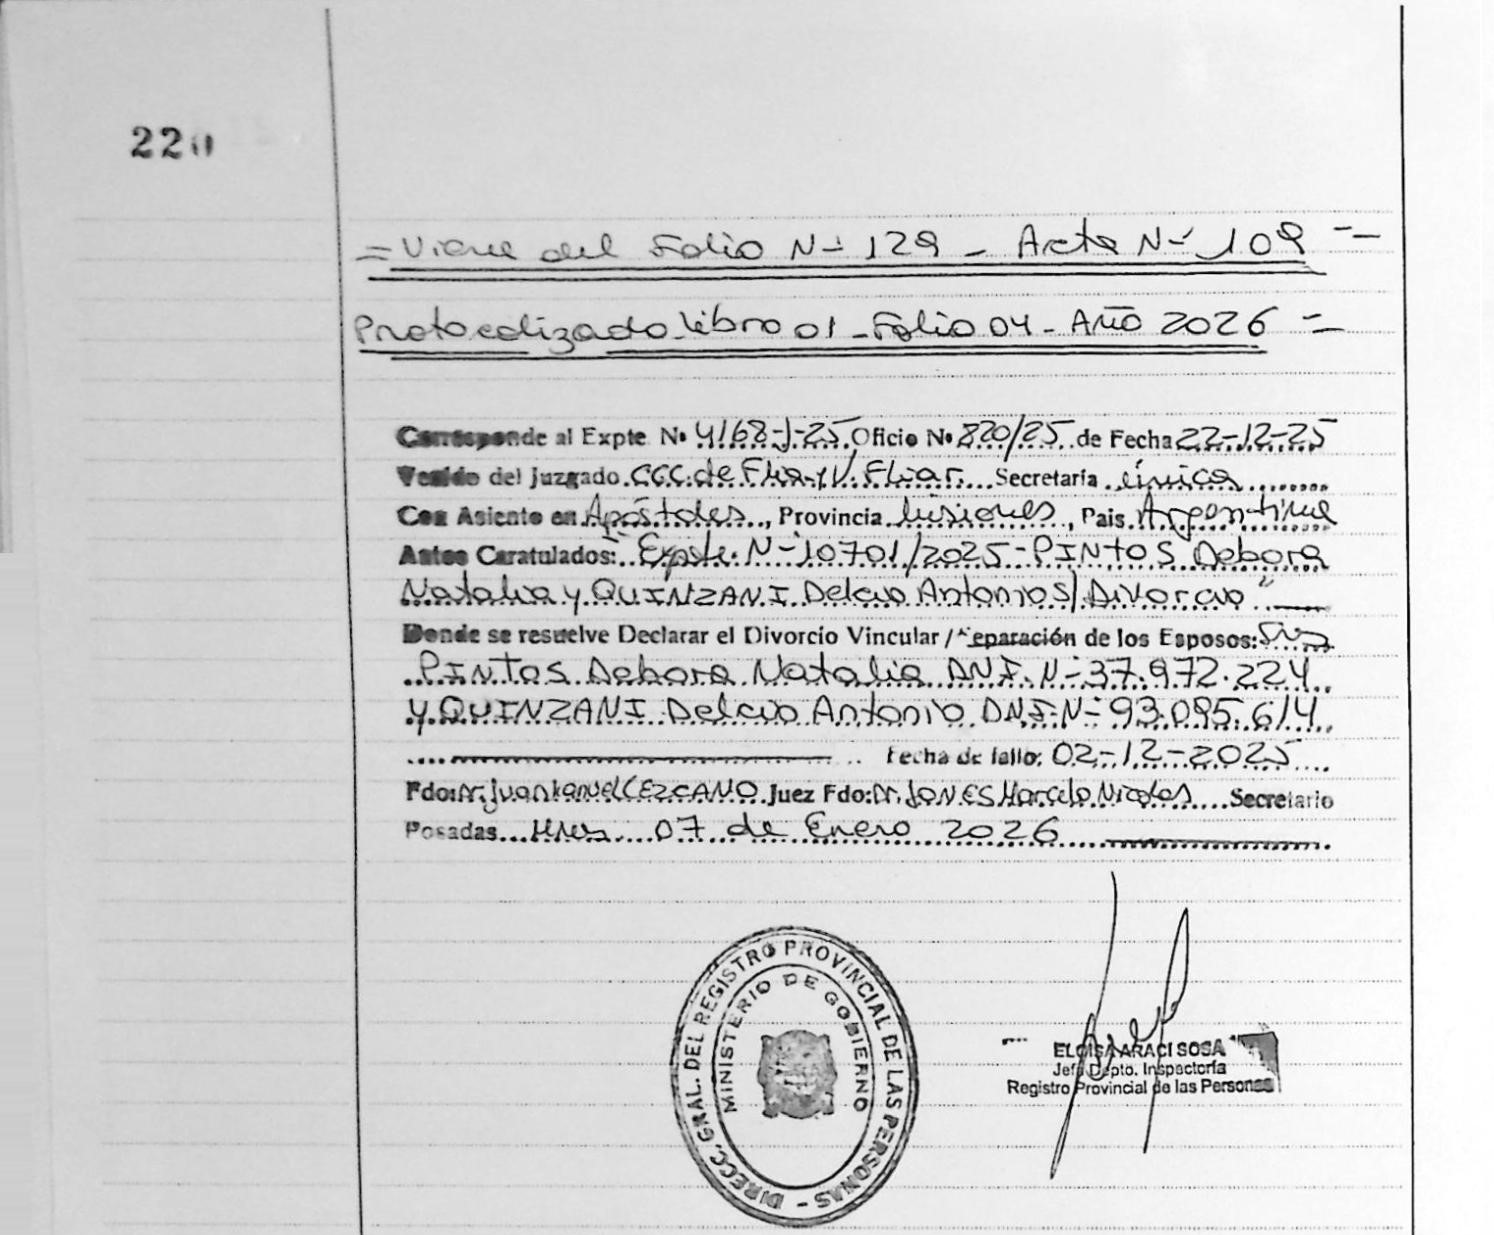 220
= Viene del Folio Nº 129 - Acta Nº 109 --
Protocolizado Libro 01 - Folio 04 - Año 2026 --
Corresponde al Expte. Nº 4168-J-25 Oficio Nº 820/25 de Fecha 22-12-25
Venido del Juzgado CCC. de Flia. y V. Fliar. Secretaría única
Con Asiento en Apóstoles, Provincia Misiones, Pais Argentina
Autos Caratulados: Expte. Nº 10701/2025 - PINTOS Debora
Natalia y QUINZANI Delcio Antonio S/ Divorcio"
Donde se resuelve Declarar el Divorcio Vincular / Separación de los Esposos:
PINTOS Debora Natalia DNI. Nº 37.972.224
y QUINZANI Delcio Antonio DNI. Nº 93.095.614
Fecha de fallo: 02-12-2025
Fdo: Dr. Juan Manuel LEZCANO Juez Fdo: Dr. JONES Marcelo Nicolas Secretario
Posadas Mnes 07 de Enero 2026
DIRECC. GRAL. DEL REGISTRO PROVINCIAL DE LAS PERSONAS -
MINISTERIO DE GOBIERNO
ELOISA ARACI SOSA
Jefa Dpto. Inspectoría
Registro Provincial de las Personas